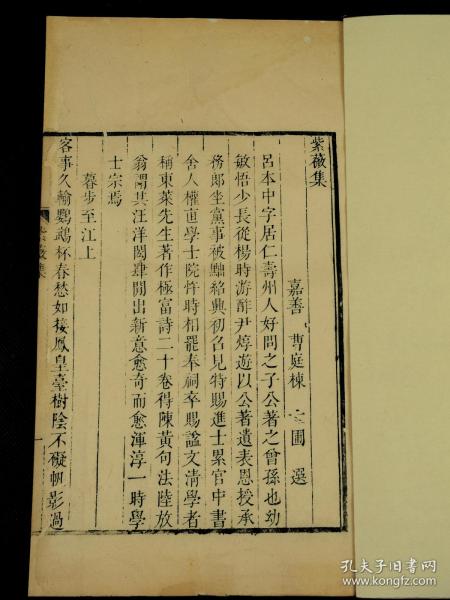 紫薇集
嘉善 曹庭棟 六圃 選
呂本中字居仁壽州人好問之子公著之曾孫也幼
敏悟少長從楊時游酢尹焞遊以公著遺表恩授承
務郎坐黨事被黜紹興初召見特賜進士累官中書
舍人權直學士院忤時相罷奉祠卒賜諡文清學者
稱東萊先生著作極富詩二十卷得陳黃句法陸放
翁謂其汪洋閎肆間出新意愈奇而愈渾淳一時學
士宗焉
暮步至江上
客事久輸鸚鵡杯春愁如接鳳皇臺樹陰不礙帆影過
紫薇集
一
孔夫子旧书网
www.kongfz.com